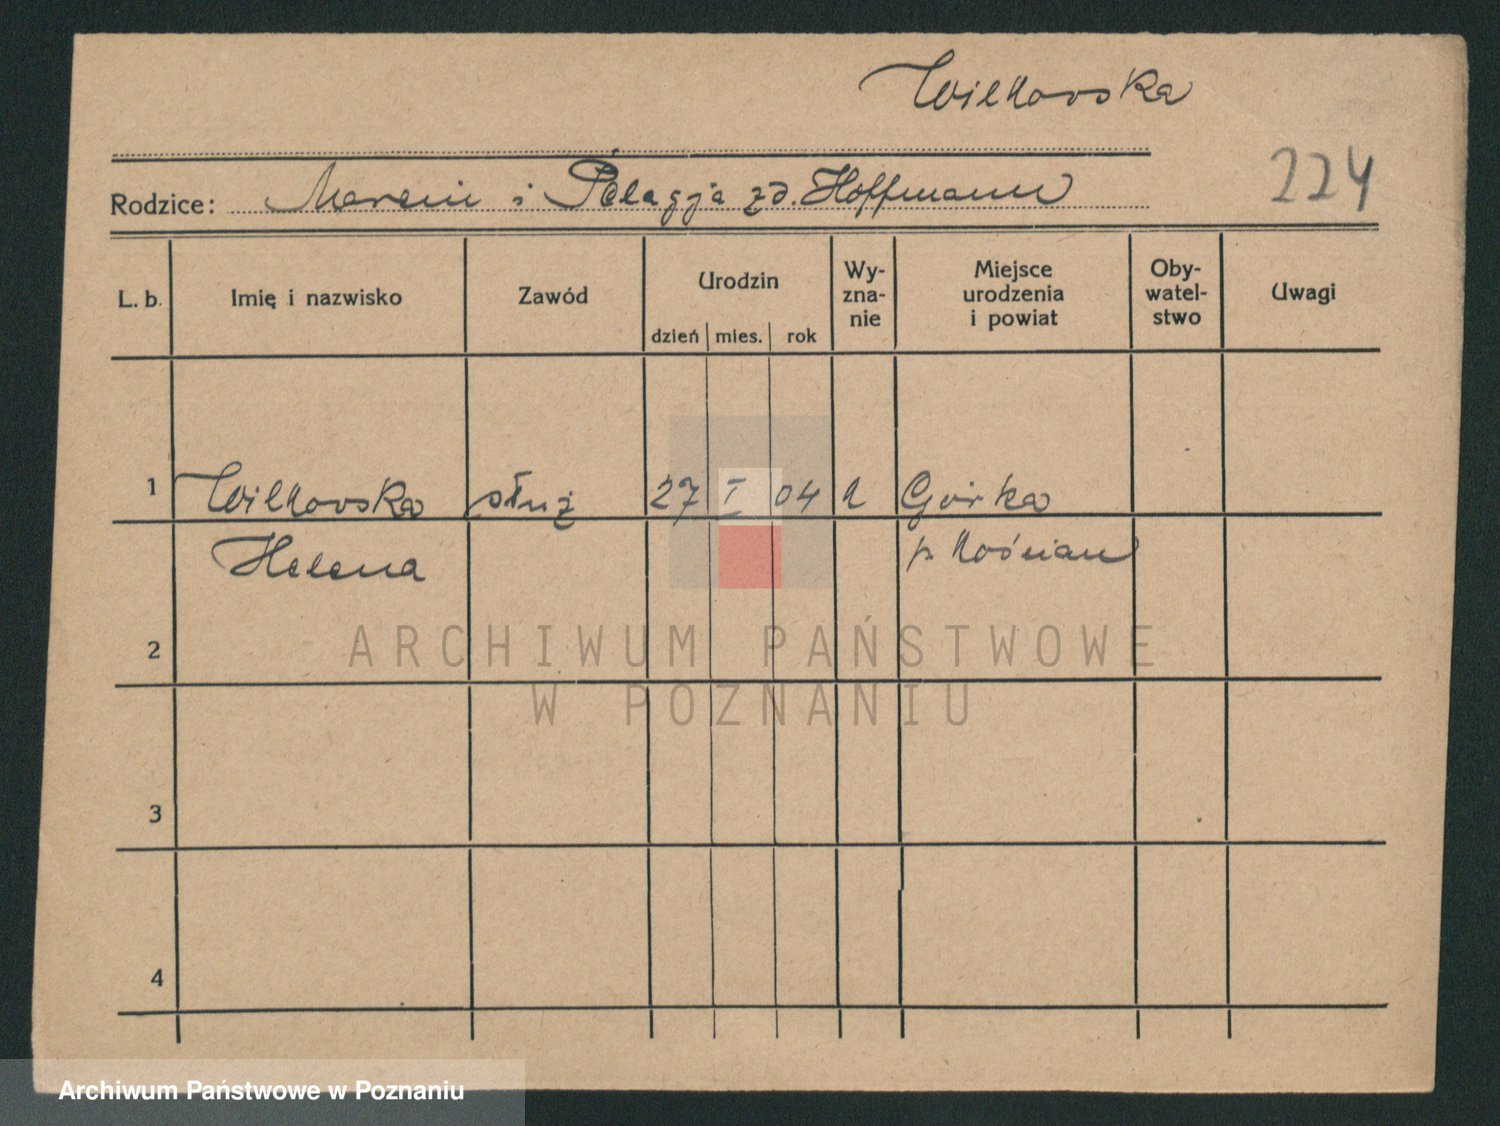 Wilkowska
224
Rodzice: Marcin i Pelagja zd. Hoffmann
L. b. Imię i nazwisko Zawód Urodzin dzień mies. rok Wy-zna-nie Miejsce urodzenia i powiat Oby-watel-stwo Uwagi
1 Wilkowska służ 27 I 04 k Górka
Helena p. Kościan
2
ARCHIWUM PAŃSTWOWE
W POZNANIU
3
4
Archiwum Państwowe w Poznaniu